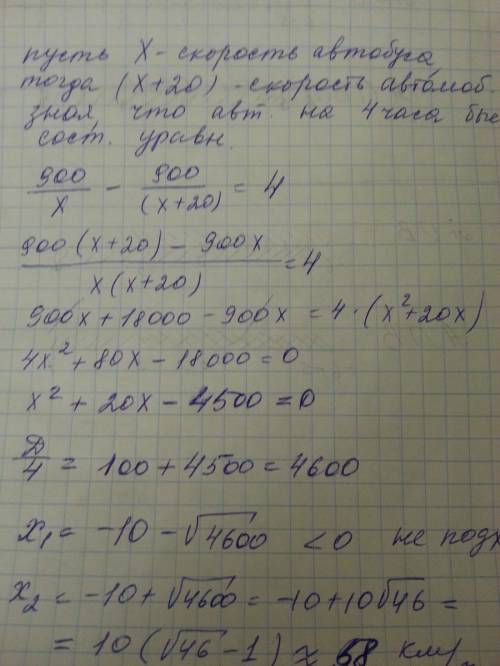 пусть X - скорость автобуса
тогда (x+20) - скорость автомоб.
зная, что авт. на 4 часа быс
сост. уравн.
900/x - 900/(x+20) = 4
(900(x+20) - 900x)/(x(x+20)) = 4
900x + 18000 - 900x = 4·(x²+20x)
4x² + 80x - 18000 = 0
x² + 20x - 4500 = 0
Д/4 = 100 + 4500 = 4600
x₁ = -10 - √4600 < 0 не подх
x₂ = -10 + √4600 = -10 + 10√46 =
= 10(√46 - 1) ≈ 58 км/